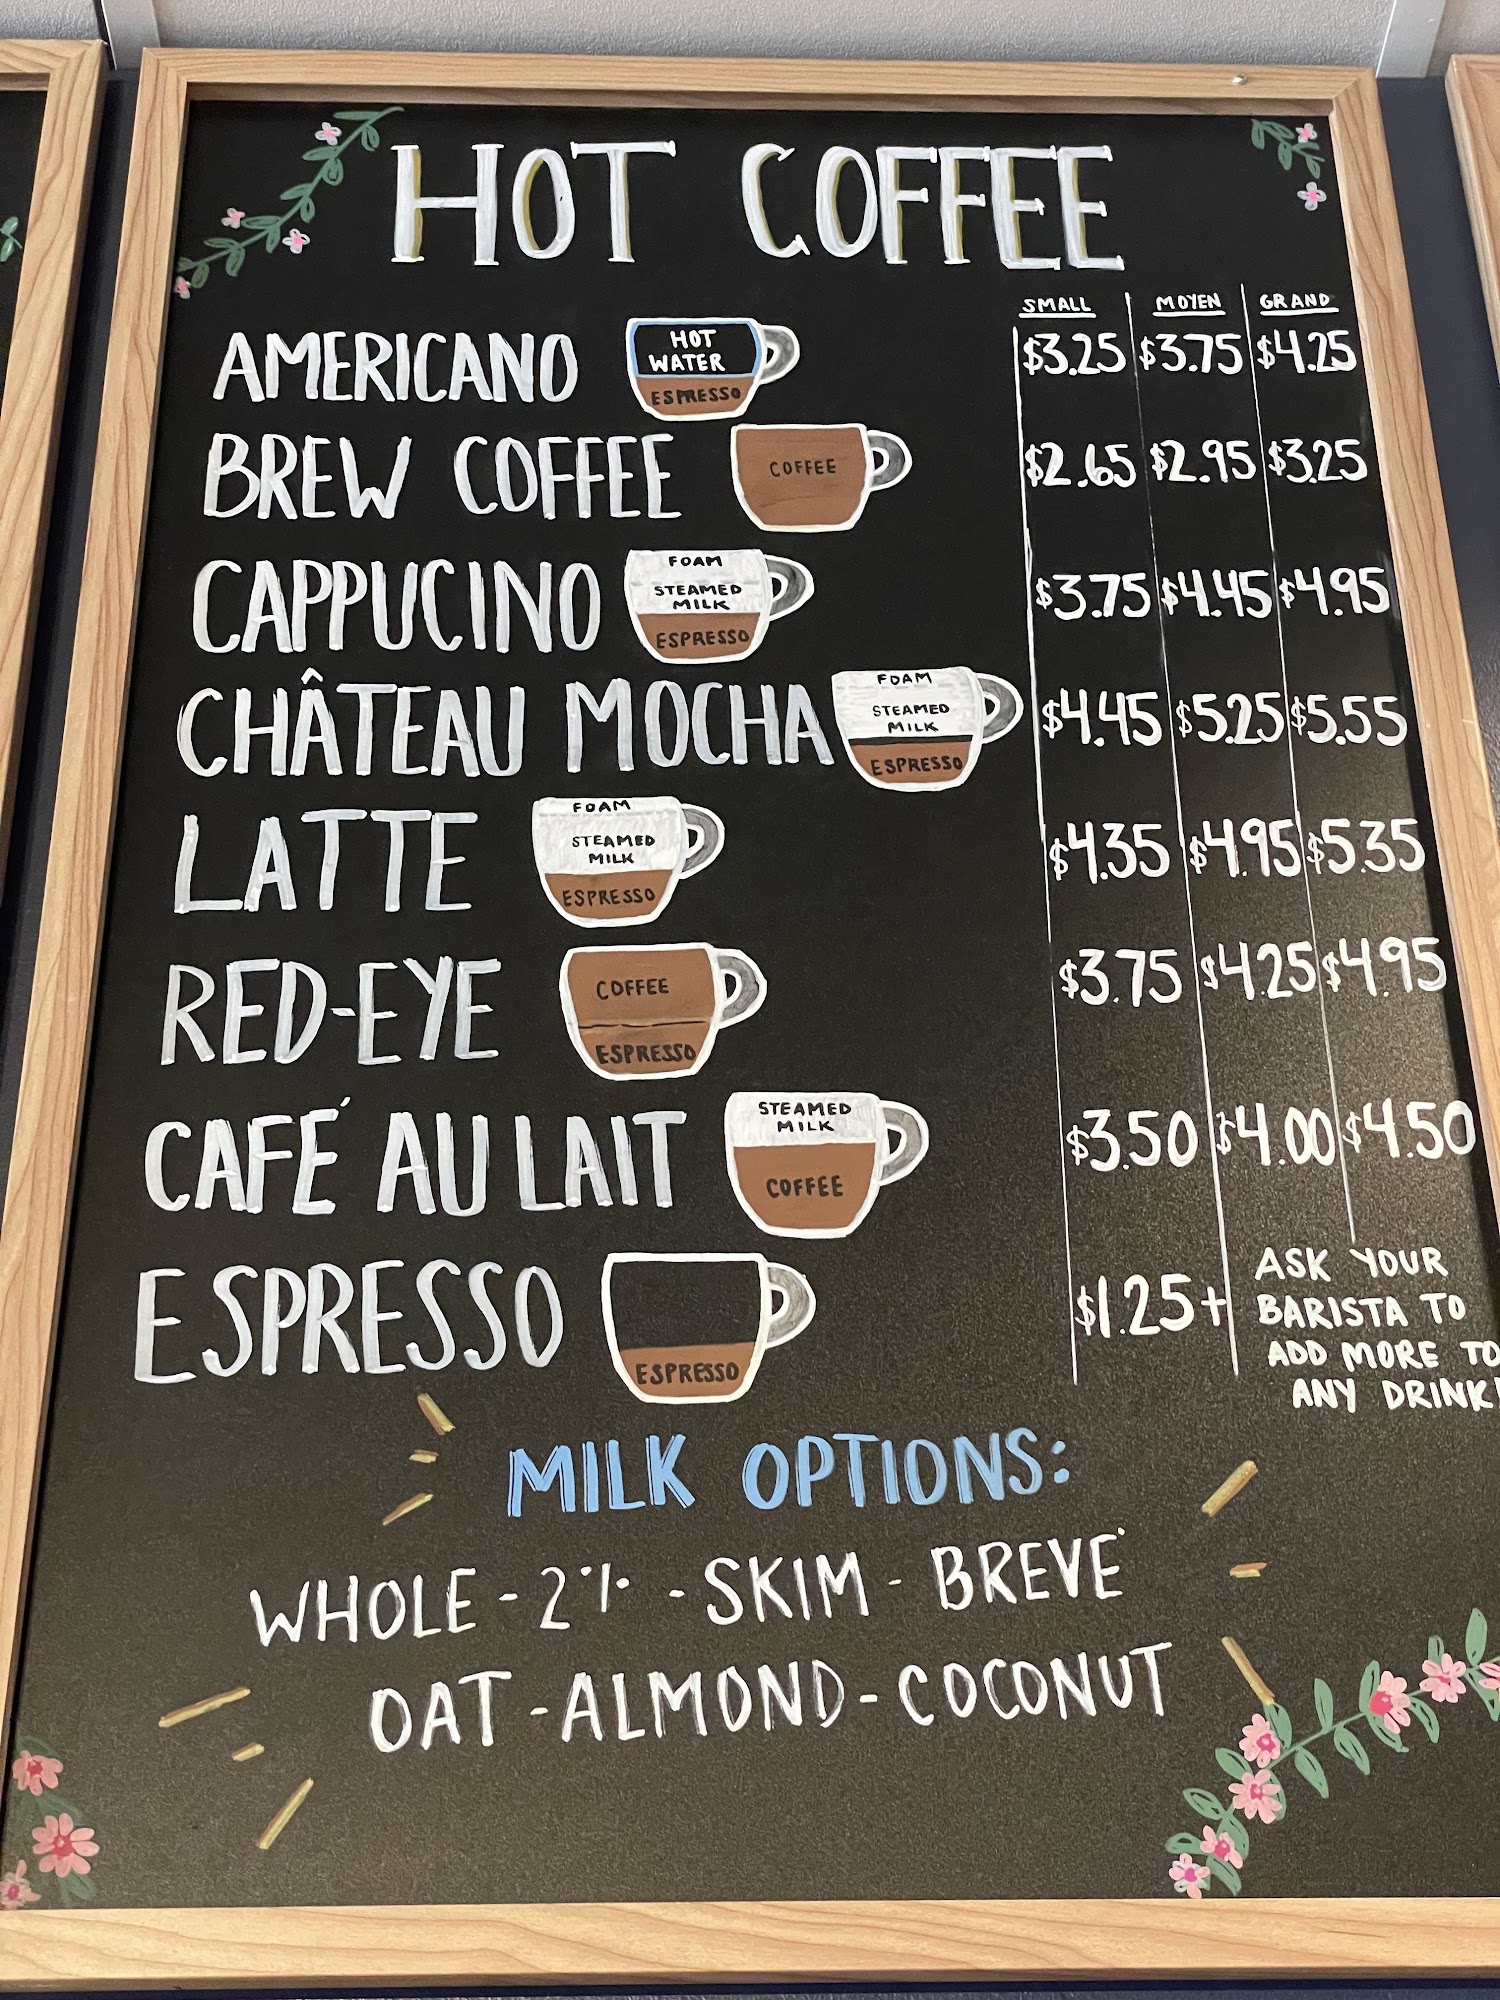 HOT COFFEE
SMALL MOYEN GRAND
AMERICANO HOT WATER ESPRESSO $3.25 $3.75 $4.25
BREW COFFEE COFFEE $2.65 $2.95 $3.25
CAPPUCINO FOAM STEAMED MILK ESPRESSO $3.75 $4.45 $4.95
CHÂTEAU MOCHA FOAM STEAMED MILK ESPRESSO $4.45 $5.25 $5.55
LATTE FOAM STEAMED MILK ESPRESSO $4.35 $4.95 $5.35
RED-EYE COFFEE ESPRESSO $3.75 $4.25 $4.95
CAFÉ AU LAIT STEAMED MILK COFFEE $3.50 $4.00 $4.50
ESPRESSO ESPRESSO $1.25+
ASK YOUR
BARISTA TO
ADD MORE TO
ANY DRINK!
MILK OPTIONS:
WHOLE - 2% - SKIM - BREVÉ
OAT - ALMOND - COCONUT